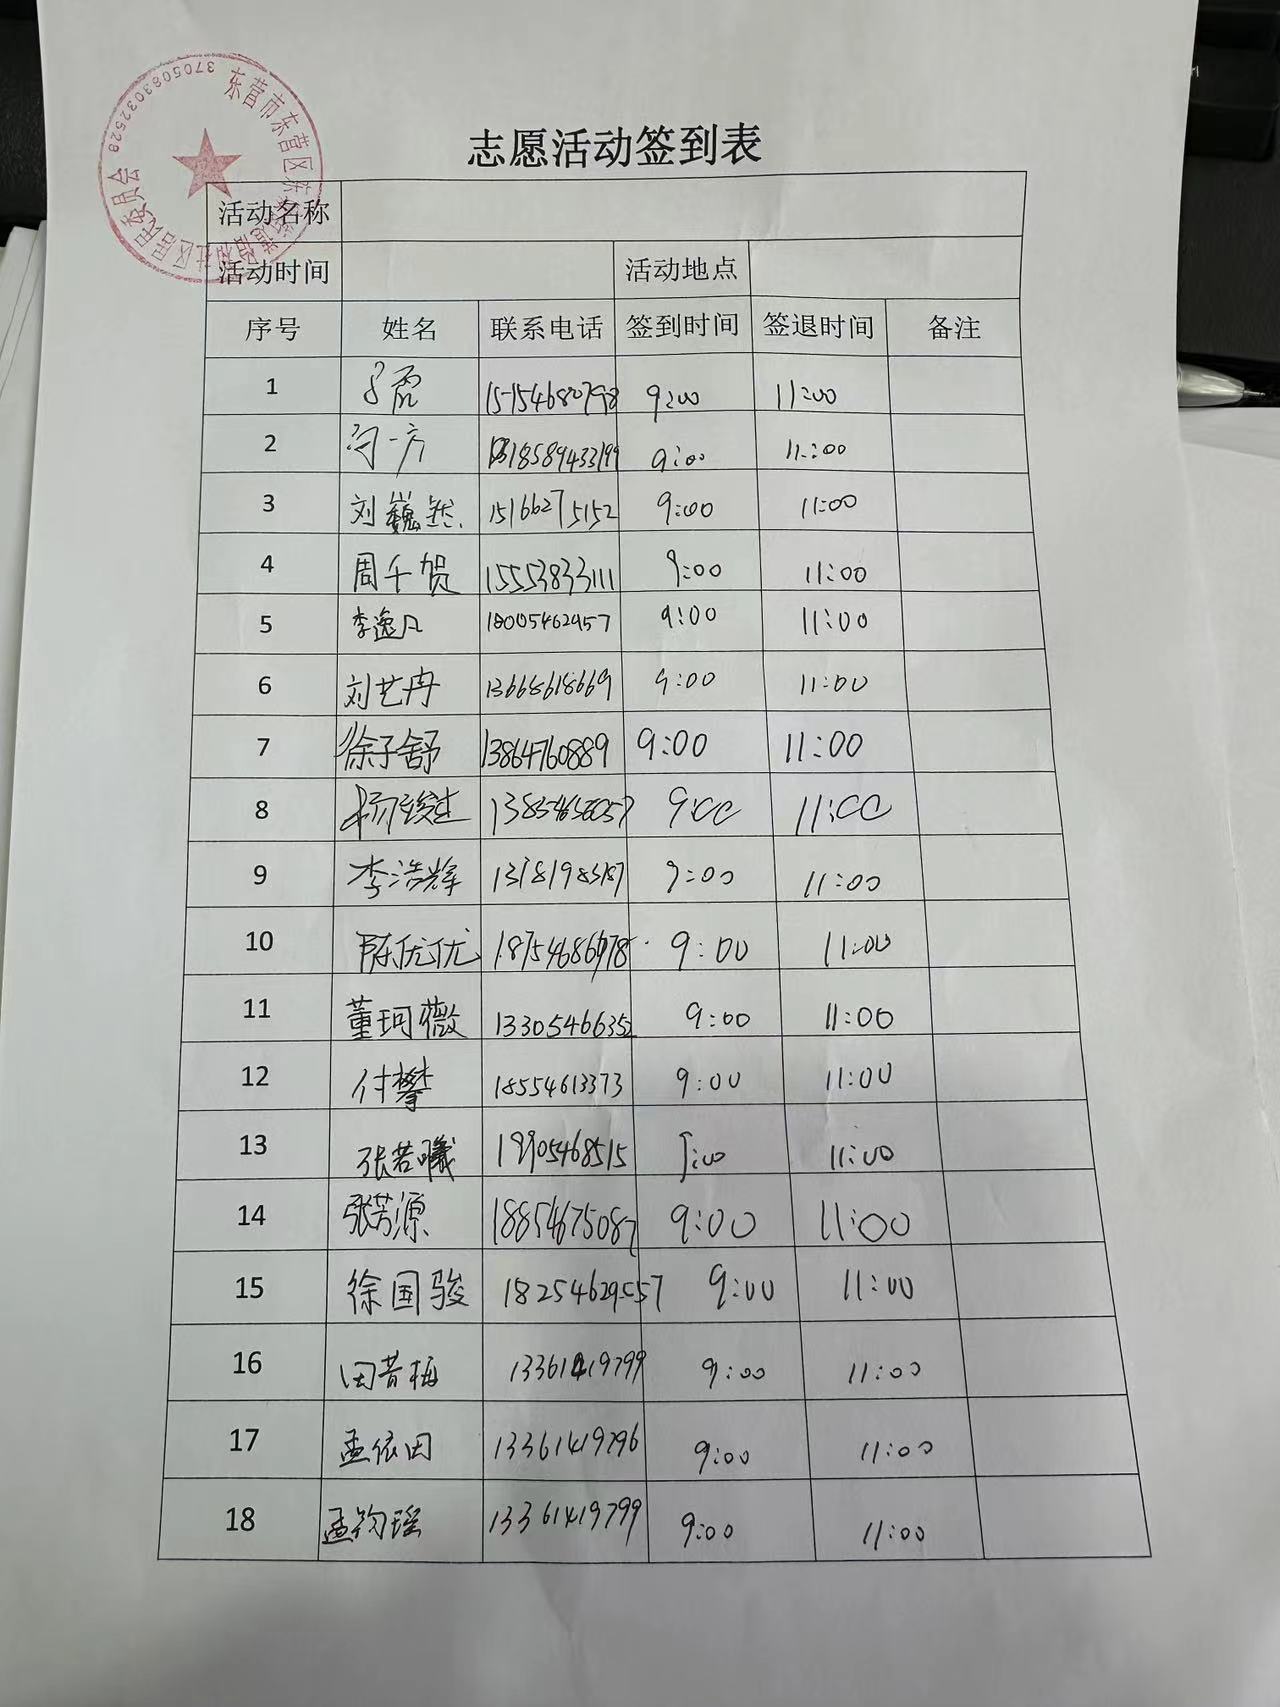 东营市东营区
社区居民委员会
3705083032528
志愿活动签到表
活动名称
活动时间 活动地点
序号 姓名 联系电话 签到时间 签退时间 备注
1 15154680798 9:00 11:00
2 9:00 11:00
3 刘巍然 15166275152 9:00 11:00
4 周千贺 15553833111 9:00 11:00
5 李逸凡 18005462957 9:00 11:00
6 刘艺冉 13668618669 9:00 11:00
7 徐子舒 13864760889 9:00 11:00
8 9:00 11:00
9 李浩辉 9:00 11:00
10 陈优优 9:00 11:00
11 董珂薇 13305466352 9:00 11:00
12 付攀 18554613373 9:00 11:00
13 张若曦 19905468515 9:00 11:00
14 张芳源 18854675087 9:00 11:00
15 徐国骏 18254629557 9:00 11:00
16 田昔梅 13361419799 9:00 11:00
17 孟依田 13361419796 9:00 11:00
18 孟钧瑶 13361419799 9:00 11:00